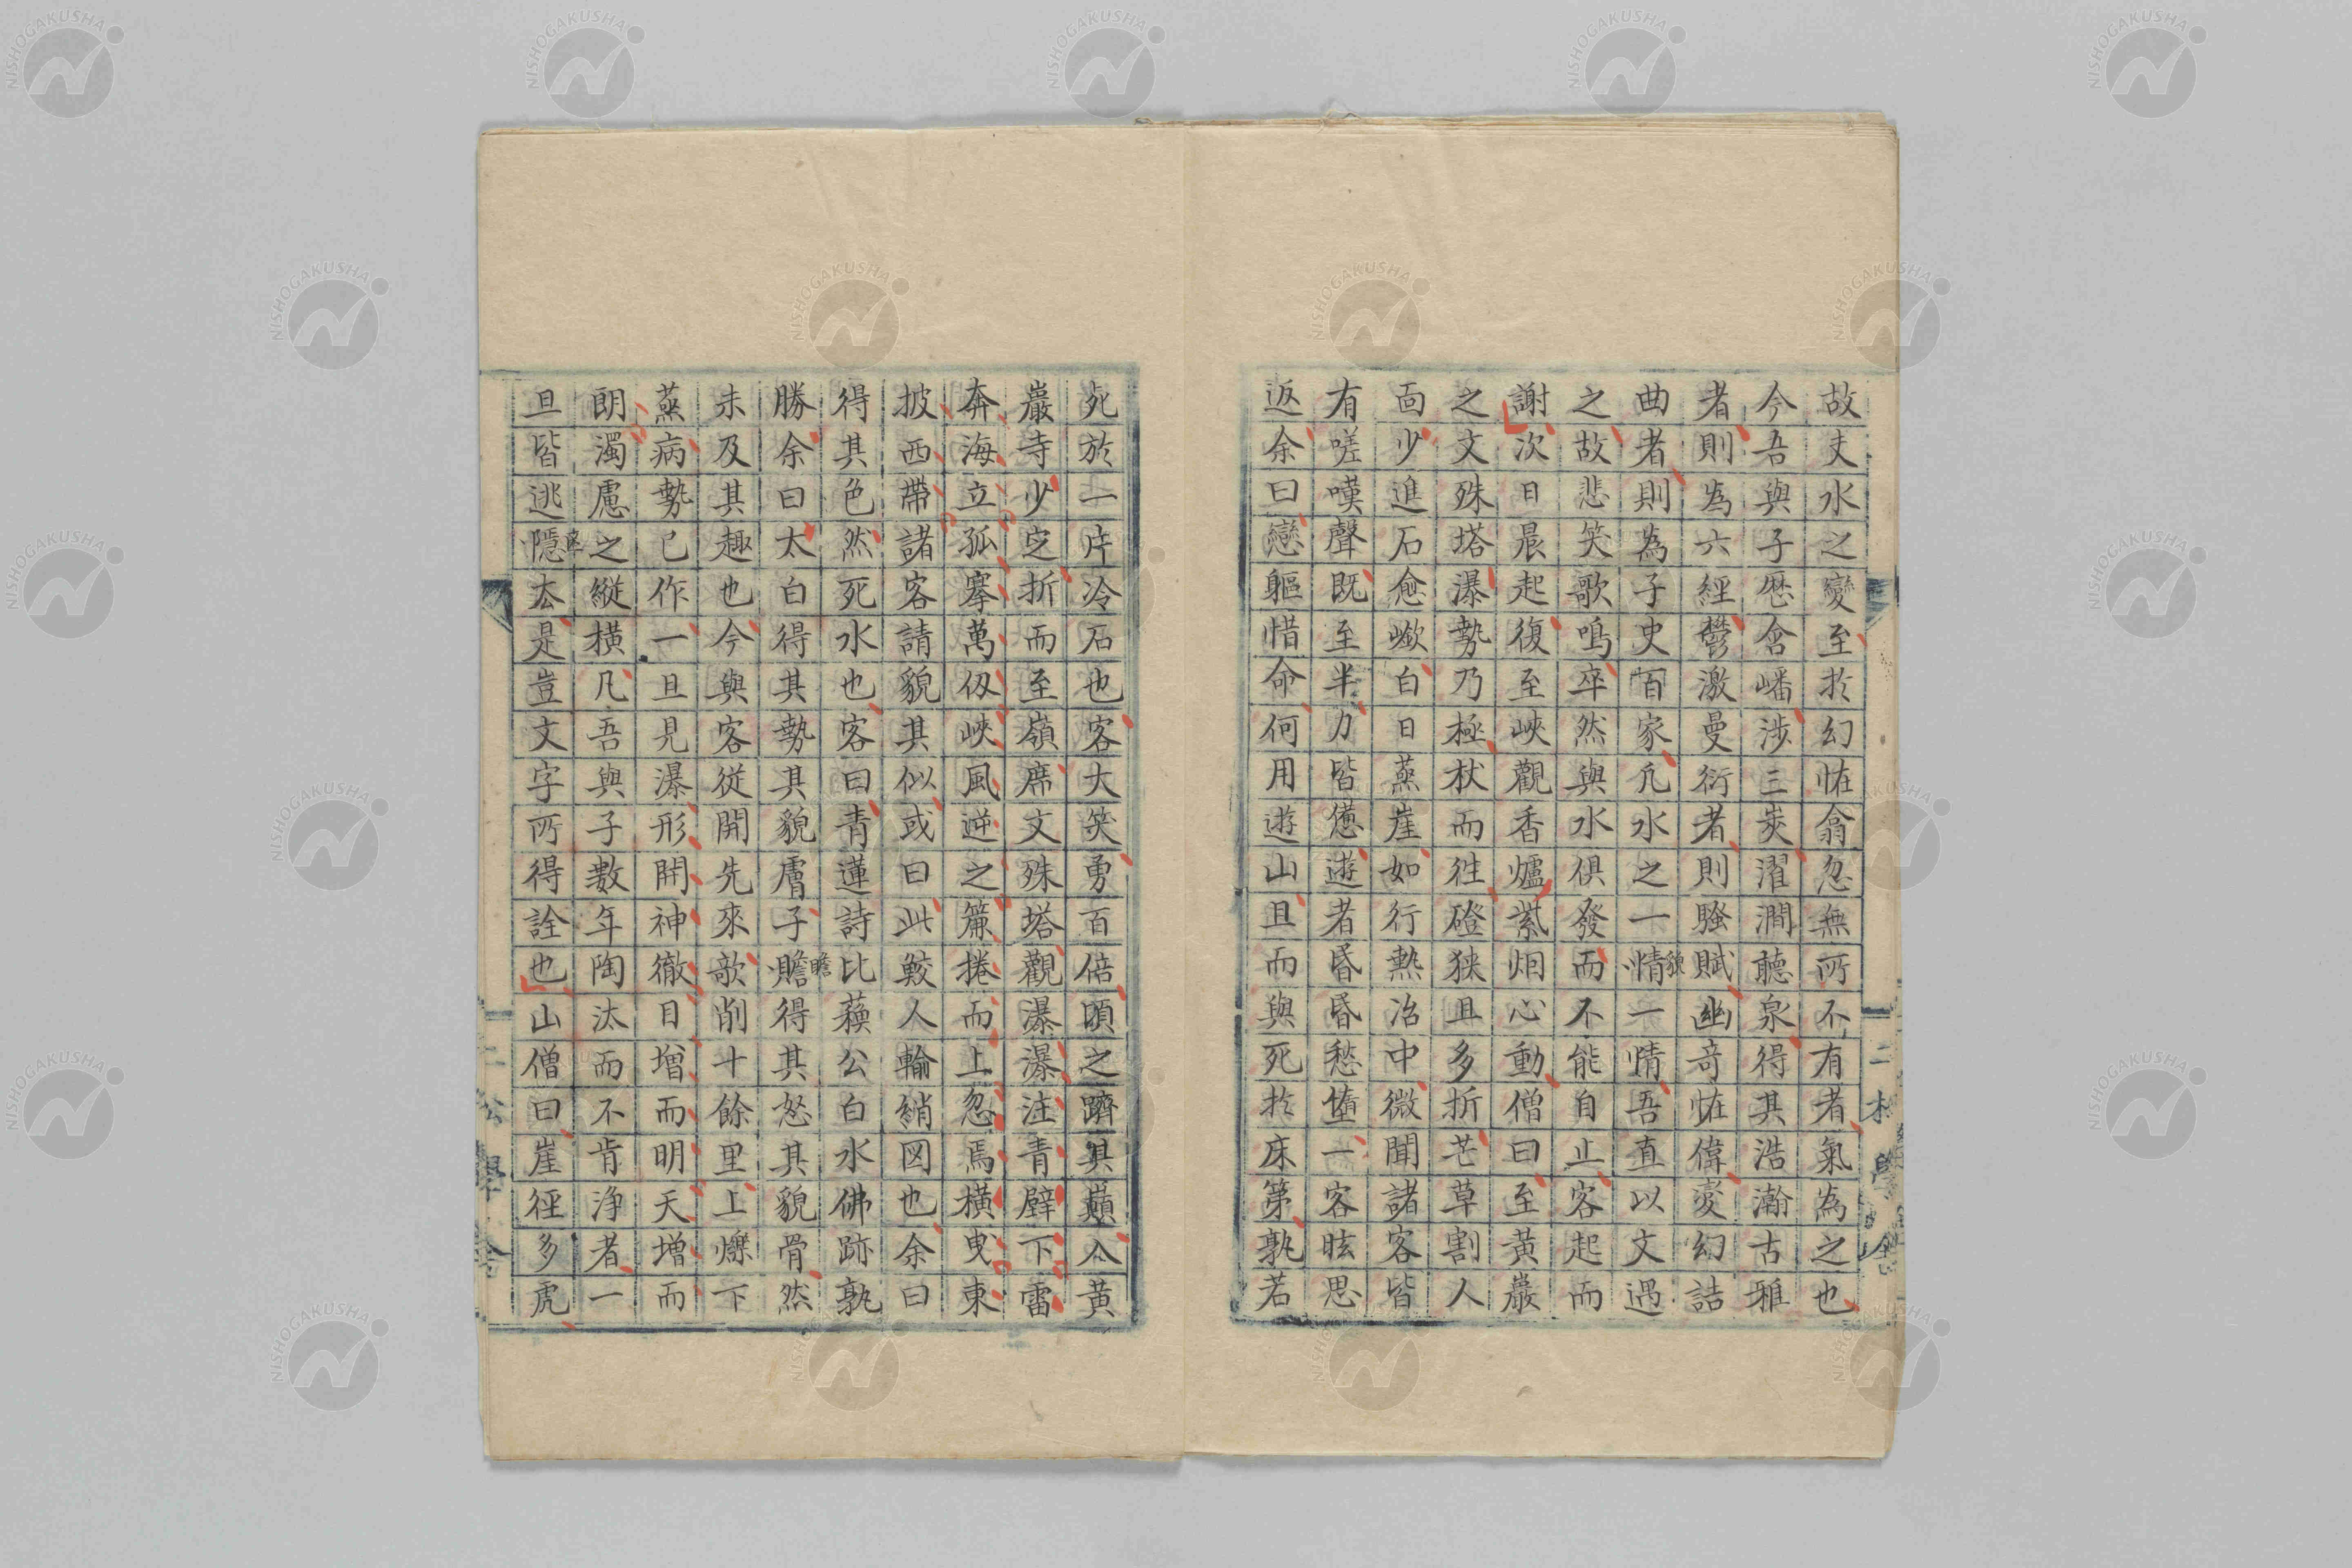 故夫水之變至於幻恠翕忽無所不有者氣為之也
今吾與子歴含嶓涉三峽濯澗聽泉得其浩瀚古雅
者則為六經鬱激曼衍者則騷賦幽奇恠偉變幻詰
曲者則為子史百家凢水之一情一情吾直以文遇
貌
之故悲笑歌鳴卒然與水俱發而不能自止客起而
謝次日晨起復至峽觀香爐紫烟心動僧曰至黃巖
之文殊塔瀑勢乃極杖而徃磴狹且多折芒草割人
面少進石愈嶔白日蒸崖如行熱冶中微聞諸客皆
有嗟嘆聲既至半力皆憊遊者昏昏愁墮一客眩思
返余曰戀軀惜命何用遊山且而與死於床第孰若
死於一片冷石也客大笑勇百倍頃之躋其巔入黃
巖寺少定折而至嶺席文殊塔觀瀑瀑注青壁下雷
奔海立孤搴萬仭峽風逆之簾捲而上忽焉橫曳東
披西帶諸客請貌其似或曰此鮫人輸綃図也余曰
得其色然死水也客曰青蓮詩比蘓公白水佛跡孰
勝余曰太白得其勢其貌膚子贍得其怒其貌骨然
瞻
未及其趣也今與客從開先來歊削十餘里上爍下
蒸病勢已作一旦見瀑形開神徹目增而明天增而
朗濁慮之縱橫凡吾與子數年陶汰而不肯淨者一
旦皆逃隱去是豈文字所得詮也山僧曰崖徑多虎
二松學舎
二松學舎